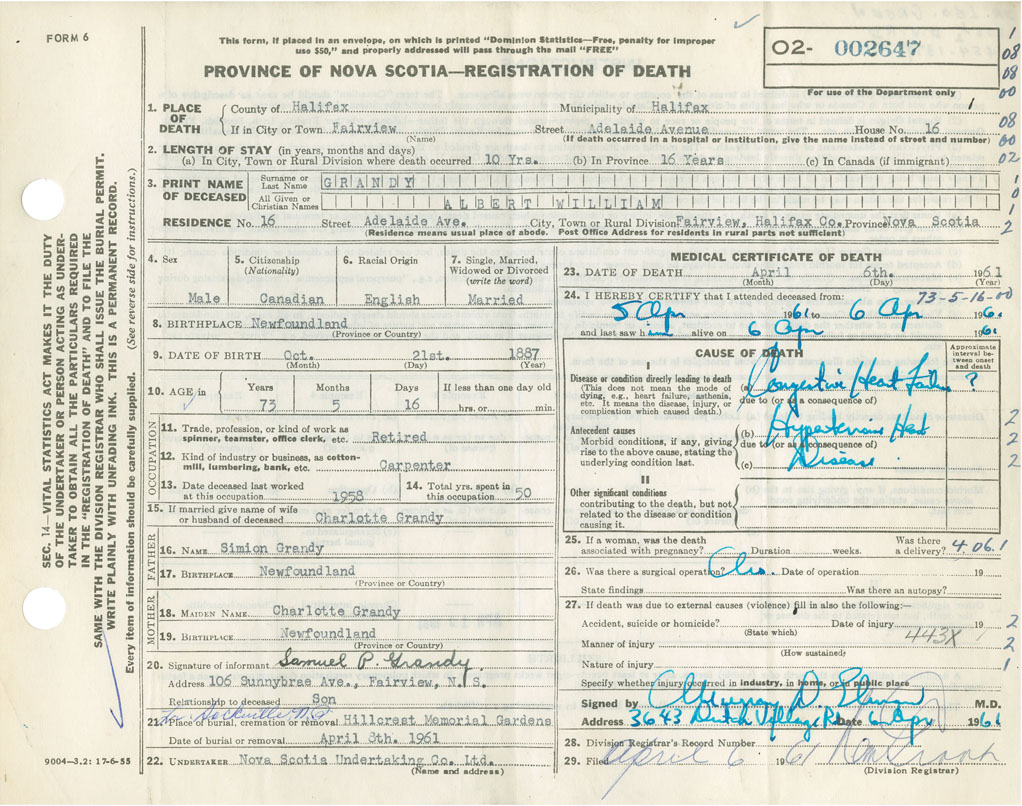 FORM 6
This form, if placed in an envelope, on which is printed "Dominion Statistics—Free, penalty for improper
use $50," and properly addressed will pass through the mail "FREE"
02- 002647
For use of the Department only
PROVINCE OF NOVA SCOTIA—REGISTRATION OF DEATH
1. PLACE OF DEATH
County of Halifax Municipality of Halifax
If in City or Town Fairview Street Adelaide Avenue House No. 16
(Name) (If death occurred in a hospital or institution, give the name instead of street and number)
2. LENGTH OF STAY (in years, months and days)
(a) In City, Town or Rural Division where death occurred 10 Yrs. (b) In Province 16 Years (c) In Canada (if immigrant)
3. PRINT NAME OF DECEASED
Surname or Last Name GRANDY
All Given or Christian Names ALBERT WILLIAM
RESIDENCE No. 16 Street Adelaide Ave. City, Town or Rural Division Fairview, Halifax Co. Province Nova Scotia
(Residence means usual place of abode. Post Office Address for residents in rural parts not sufficient)
4. Sex Male
5. Citizenship (Nationality) Canadian
6. Racial Origin English
7. Single, Married, Widowed or Divorced (write the word) Married
8. BIRTHPLACE Newfoundland
(Province or Country)
9. DATE OF BIRTH Oct. 21st. 1887
(Month) (Day) (Year)
10. AGE in Years Months Days If less than one day old
73 5 16 hrs. or min.
OCCUPATION
11. Trade, profession, or kind of work as
spinner, teamster, office clerk, etc. Retired
12. Kind of industry or business, as cotton-
mill, lumbering, bank, etc. Carpenter
13. Date deceased last worked
at this occupation 1958
14. Total yrs. spent in
this occupation 50
15. If married give name of wife
or husband of deceased Charlotte Grandy
FATHER
16. NAME Simion Grandy
17. Birthplace Newfoundland
(Province or Country)
MOTHER
18. MAIDEN NAME Charlotte Grandy
19. BIRTHPLACE Newfoundland
(Province or Country)
20. Signature of informant Samuel P. Grandy
Address 106 Sunnybrae Ave., Fairview, N. S.
Relationship to deceased Son
21. Place of burial, cremation or removal Hillcrest Memorial Gardens
Date of burial or removal April 8th. 1961
22. UNDERTAKER Nova Scotia Undertaking Co. Ltd.
(Name and address)
9004—3.2: 17-6-55
MEDICAL CERTIFICATE OF DEATH
23. DATE OF DEATH April 6th. 1961
(Month) (Day) (Year)
24. I HEREBY CERTIFY that I attended deceased from: 73-5-16-00
5 Apr 1961 to 6 Apr 1961
and last saw him alive on 6 Apr 1961
CAUSE OF DEATH
Approximate interval between onset and death
I
Disease or condition directly leading to death
(This does not mean the mode of
dying, e.g., heart failure, asthenia,
etc. It means the disease, injury, or
complication which caused death.)
(a) Congestive Heart Failure ?
due to (or as a consequence of)
Antecedent causes
Morbid conditions, if any, giving
rise to the above cause, stating the
underlying condition last.
(b) Hypertensive Heart
due to (or as a consequence of)
(c) Disease
II
Other significant conditions
contributing to the death, but not
related to the disease or condition
causing it.
25. If a woman, was the death
associated with pregnancy? Duration weeks. Was there a delivery? 406.1
26. Was there a surgical operation? Date of operation 19
State findings Was there an autopsy?
27. If death was due to external causes (violence) fill in also the following:—
Accident, suicide or homicide? Date of injury 19
(State which) 443X
Manner of injury
(How sustained)
Nature of injury
Specify whether injury occurred in industry, in home, or in public place
Signed by M.D.
Address 3643 Dutch Village Rd Date 6 Apr 1961
28. Division Registrar's Record Number
29. Filed April 6 1961
(Division Registrar)
SEC. 14—VITAL STATISTICS ACT MAKES IT THE DUTY
OF THE UNDERTAKER OR PERSON ACTING AS UNDER-
TAKER TO OBTAIN ALL THE PARTICULARS REQUIRED
IN THE "REGISTRATION OF DEATH" AND TO FILE THE
SAME WITH THE DIVISION REGISTRAR WHO SHALL ISSUE THE BURIAL PERMIT.
WRITE PLAINLY WITH UNFADING INK. THIS IS A PERMANENT RECORD.
Every item of information should be carefully supplied. (See reverse side for instructions.)
1
08
08
00
08
00
02
1
0
1
2
2
2
2
2
2
1